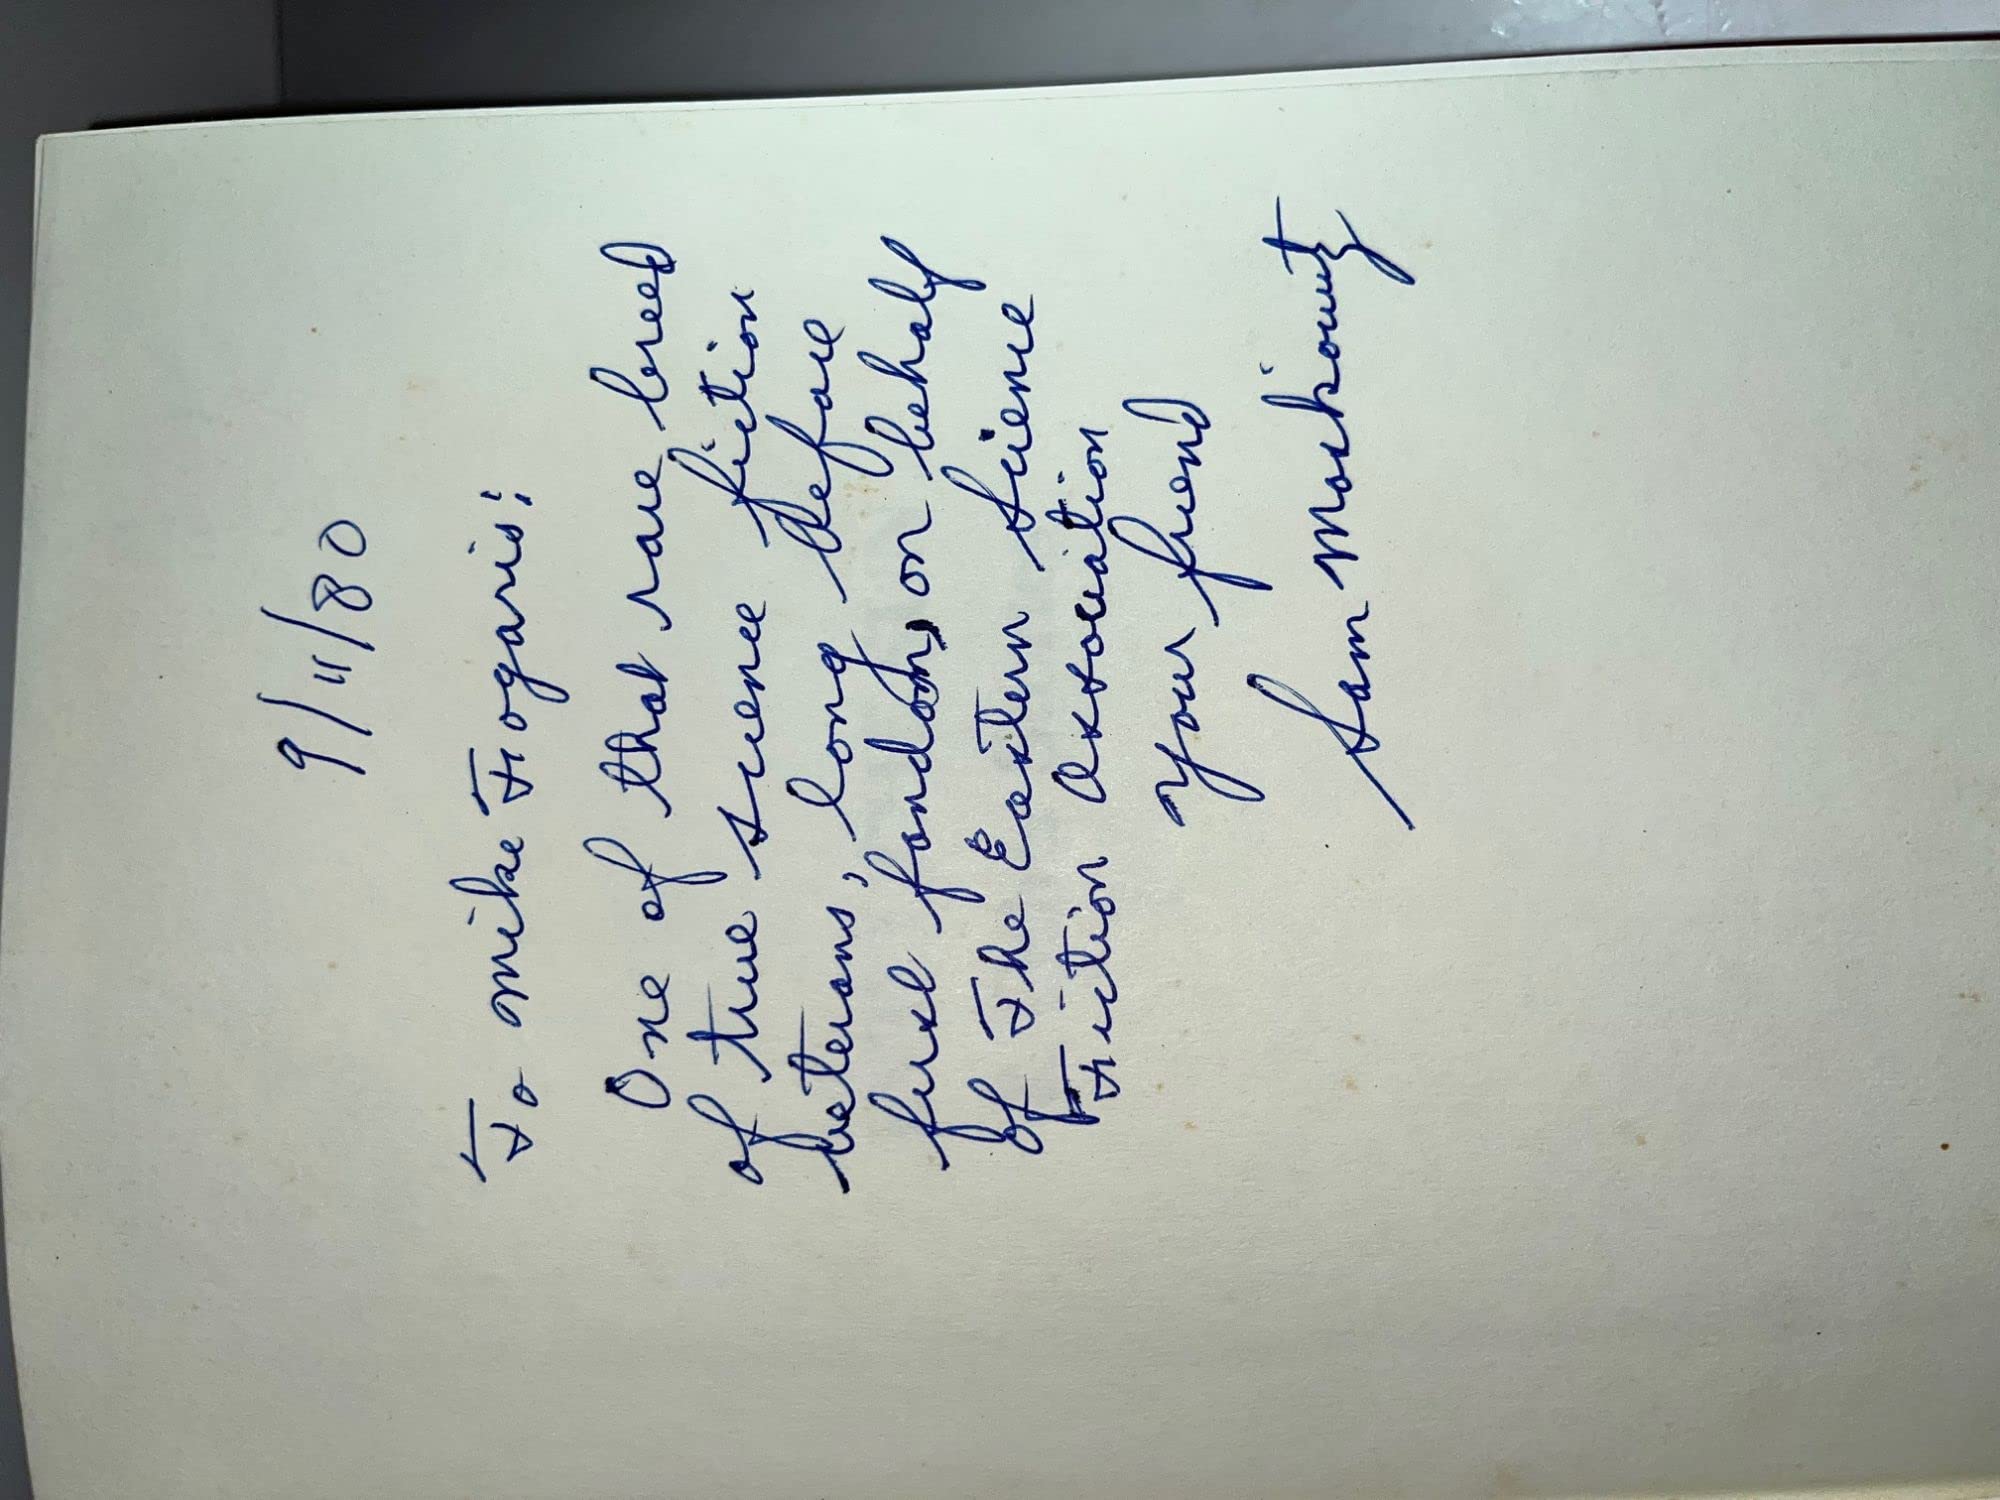 9/11/80
To Mike Fogaris:
One of that rare breed
of true science fiction
veterans, long before
first fandom, on behalf
of The Eastern Science
Fiction Association
Your friend
Sam Moskowitz